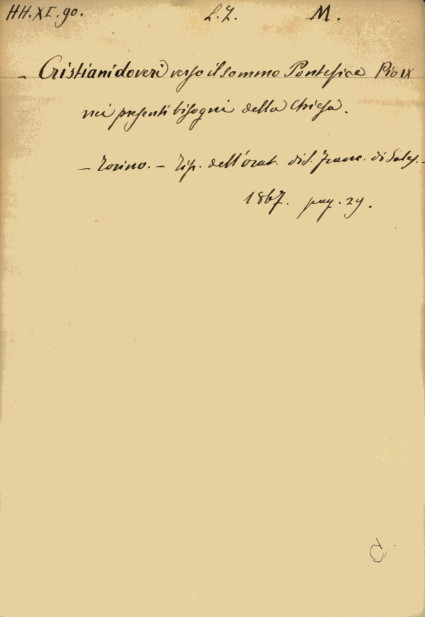 HH. XI. 90. L. Z. M.
- Cristiani doveri verso il sommo Pontefice Pio IX
nei presenti bisogni della Chiesa.
- Torino. - Tip. dell'orat. di S. Franc. di Sales. -
1867. pag. 29.